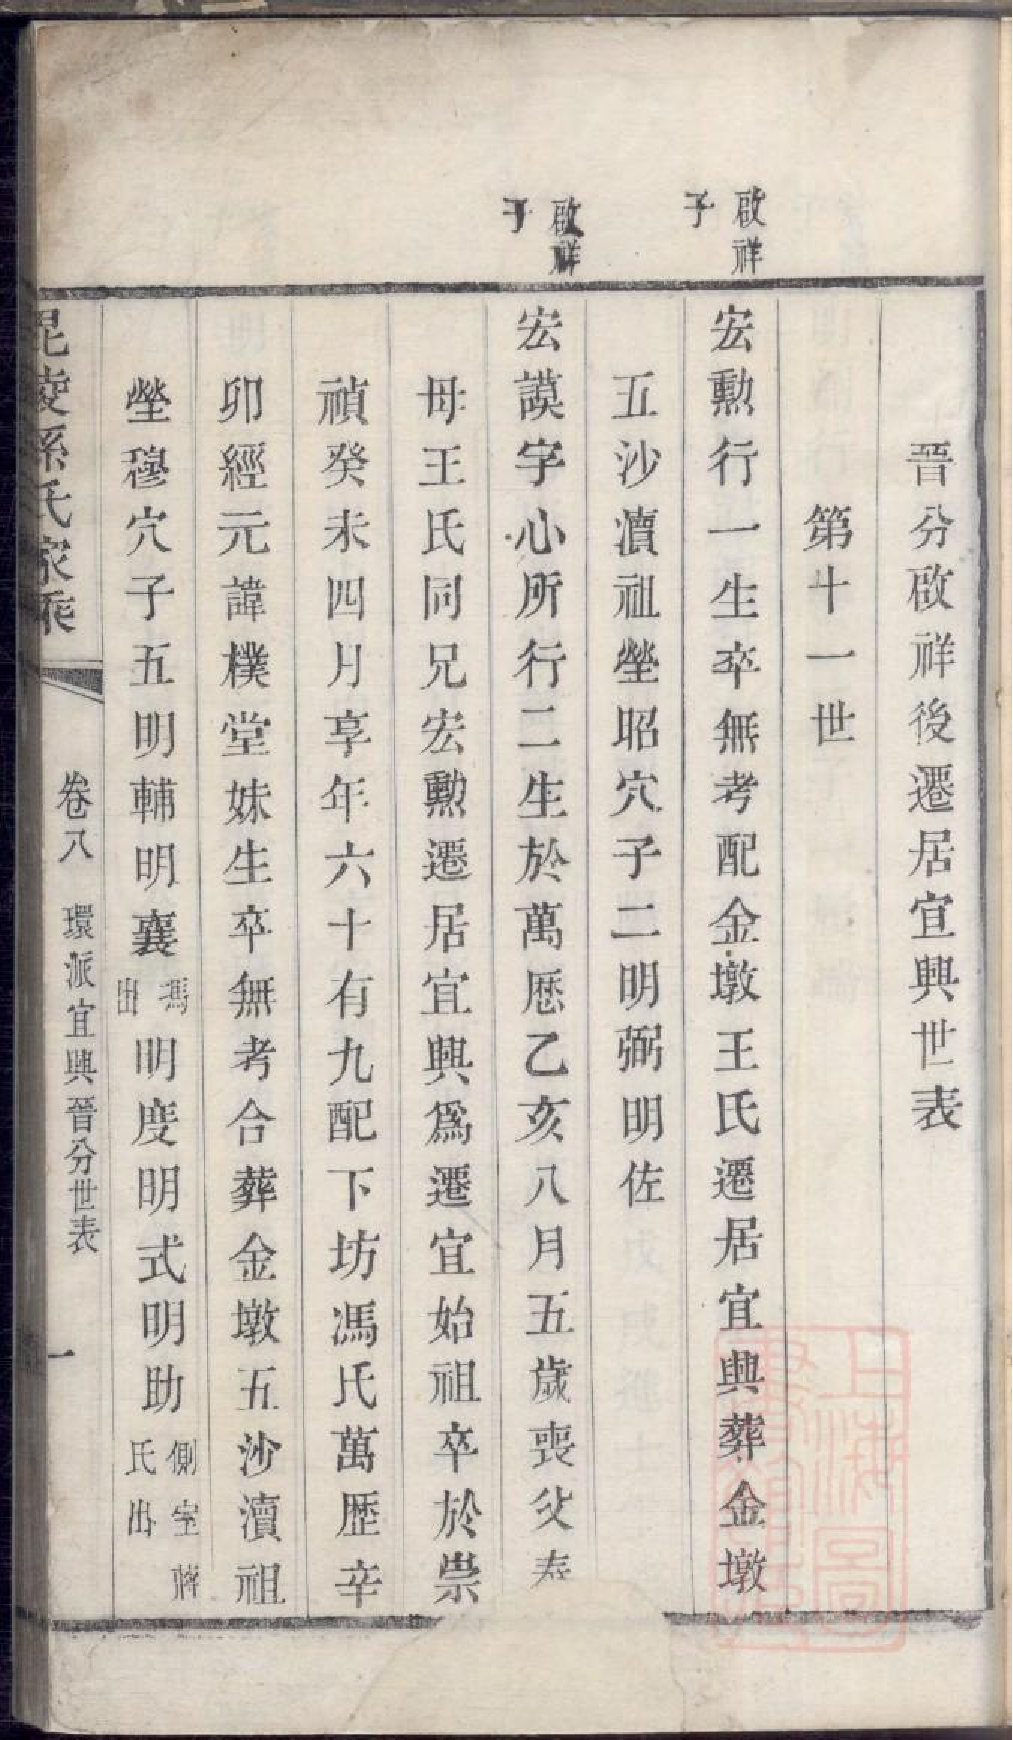 晉分啟祥後遷居宜興世表
第十一世
啟祥
子
宏勲行一生卒無考配金墩王氏遷居宜興葬金墩
五沙瀆祖塋昭穴子二明弼明佐
啟祥
子
宏謨字心所行二生於萬厯乙亥八月五歲喪父奉
母王氏同兄宏勲遷居宜興爲遷宜始祖卒於崇
禎癸未四月享年六十有九配下坊馮氏萬歴辛
卯經元諱樸堂妹生卒無考合葬金墩五沙瀆祖
塋穆穴子五明輔明襄馮出明度明式明助側室蔣氏出
毘陵孫氏家乘
卷八 環派宜興晉分世表
一
上海圖
書館藏